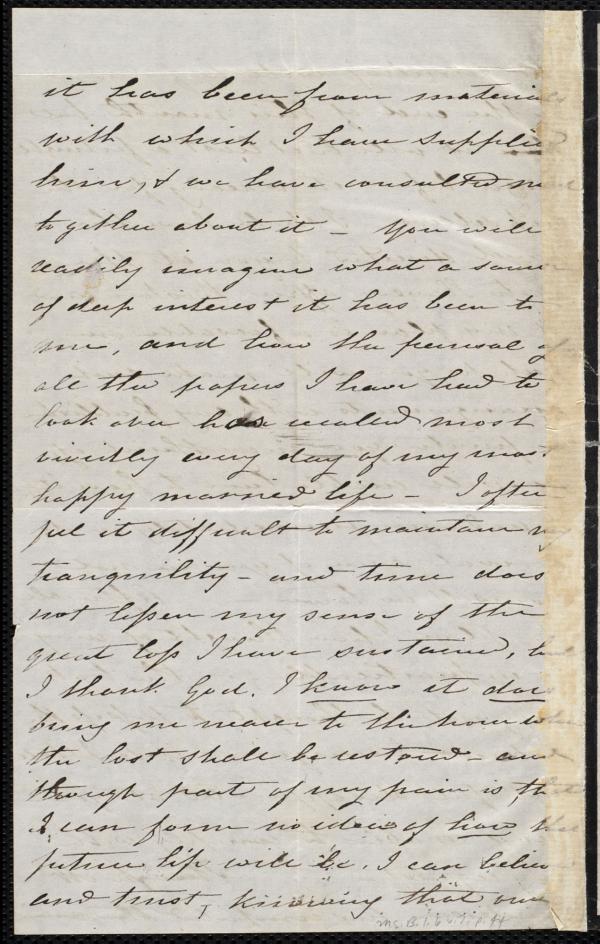 it has been from materials
with which I have supplied
him, & we have consulted
together about it – You will
readily imagine what a source
of deep interest it has been to
me, and how the perusal of
all the papers I have had to
look over has recalled most
vividly every day of my most
happy married life – I often
feel it difficult to maintain my
tranquility – and time does
not lessen my sense of the
great loss I have sustained, but
I thank God. I know it does
bring me nearer to the hour when
the lost shall be restored – and
though part of my pain is that
I can form no idea of how that
future life will be. I can believe
and trust, knowing that our
Ms. B. 1. 6